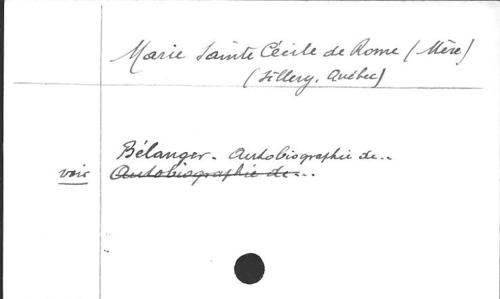 Marie Sainte Cécile de Rome (Mère)
(Sillery, Québec)
Bélanger. Autobiographie de...
voir Autobiographie de...